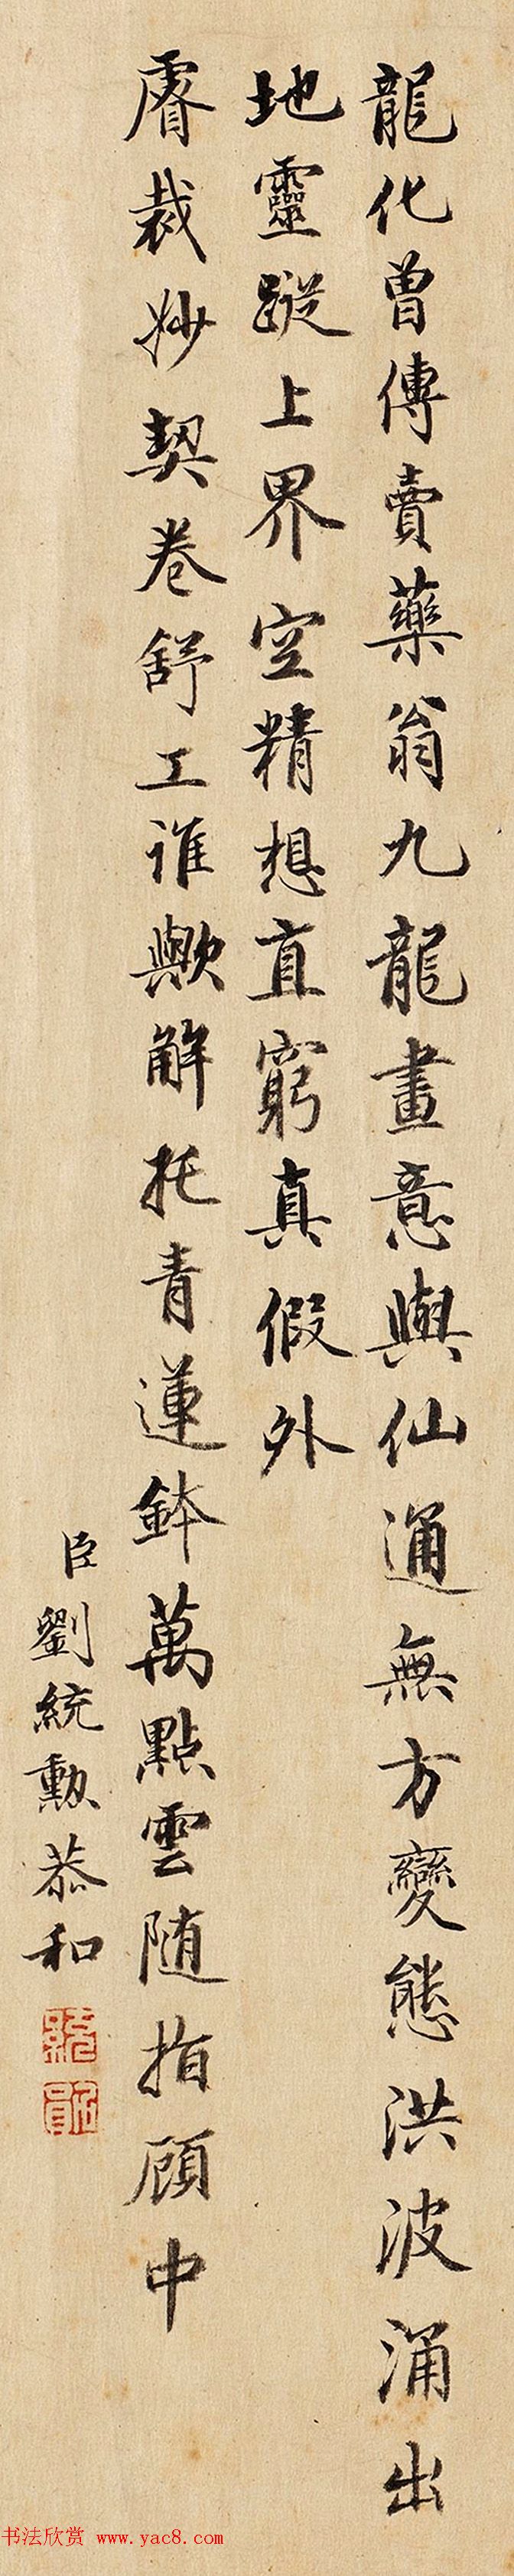 龍化曾傳賣藥翁九龍畫意與仙通無方變態洪波涌出
地靈蹤上界空精想直窮真假外
睿裁妙契卷舒工誰歟解托青蓮鉢萬點雲随指顧中
臣劉統勲恭和
书法欣赏 www.yac8.com